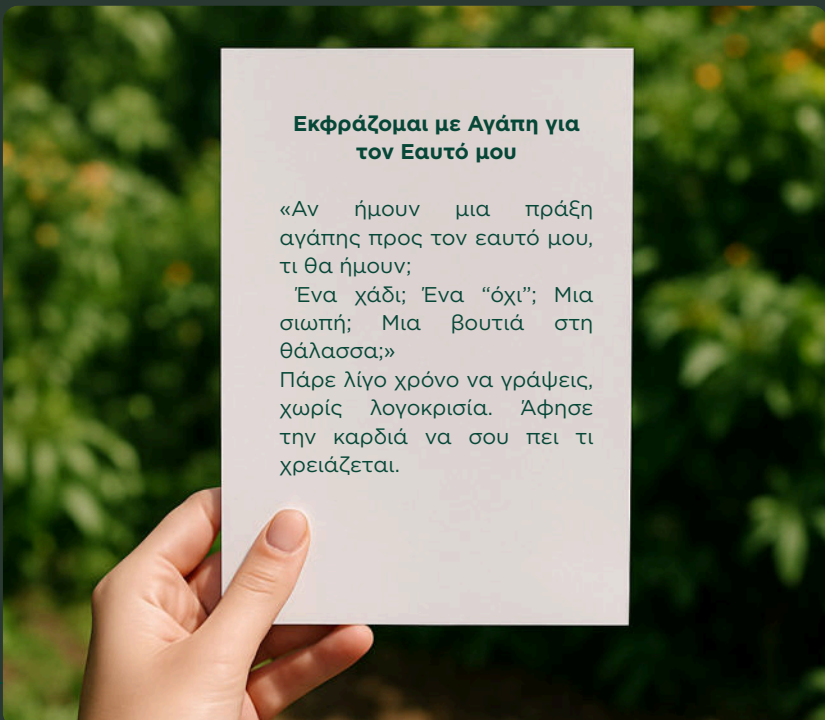 Εκφράζομαι με Αγάπη για
τον Εαυτό μου
«Αν ήμουν μια πράξη
αγάπης προς τον εαυτό μου,
τι θα ήμουν;
Ένα χάδι; Ένα “όχι”; Μια
σιωπή; Μια βουτιά στη
θάλασσα;»
Πάρε λίγο χρόνο να γράψεις,
χωρίς λογοκρισία. Άφησε
την καρδιά να σου πει τι
χρειάζεται.